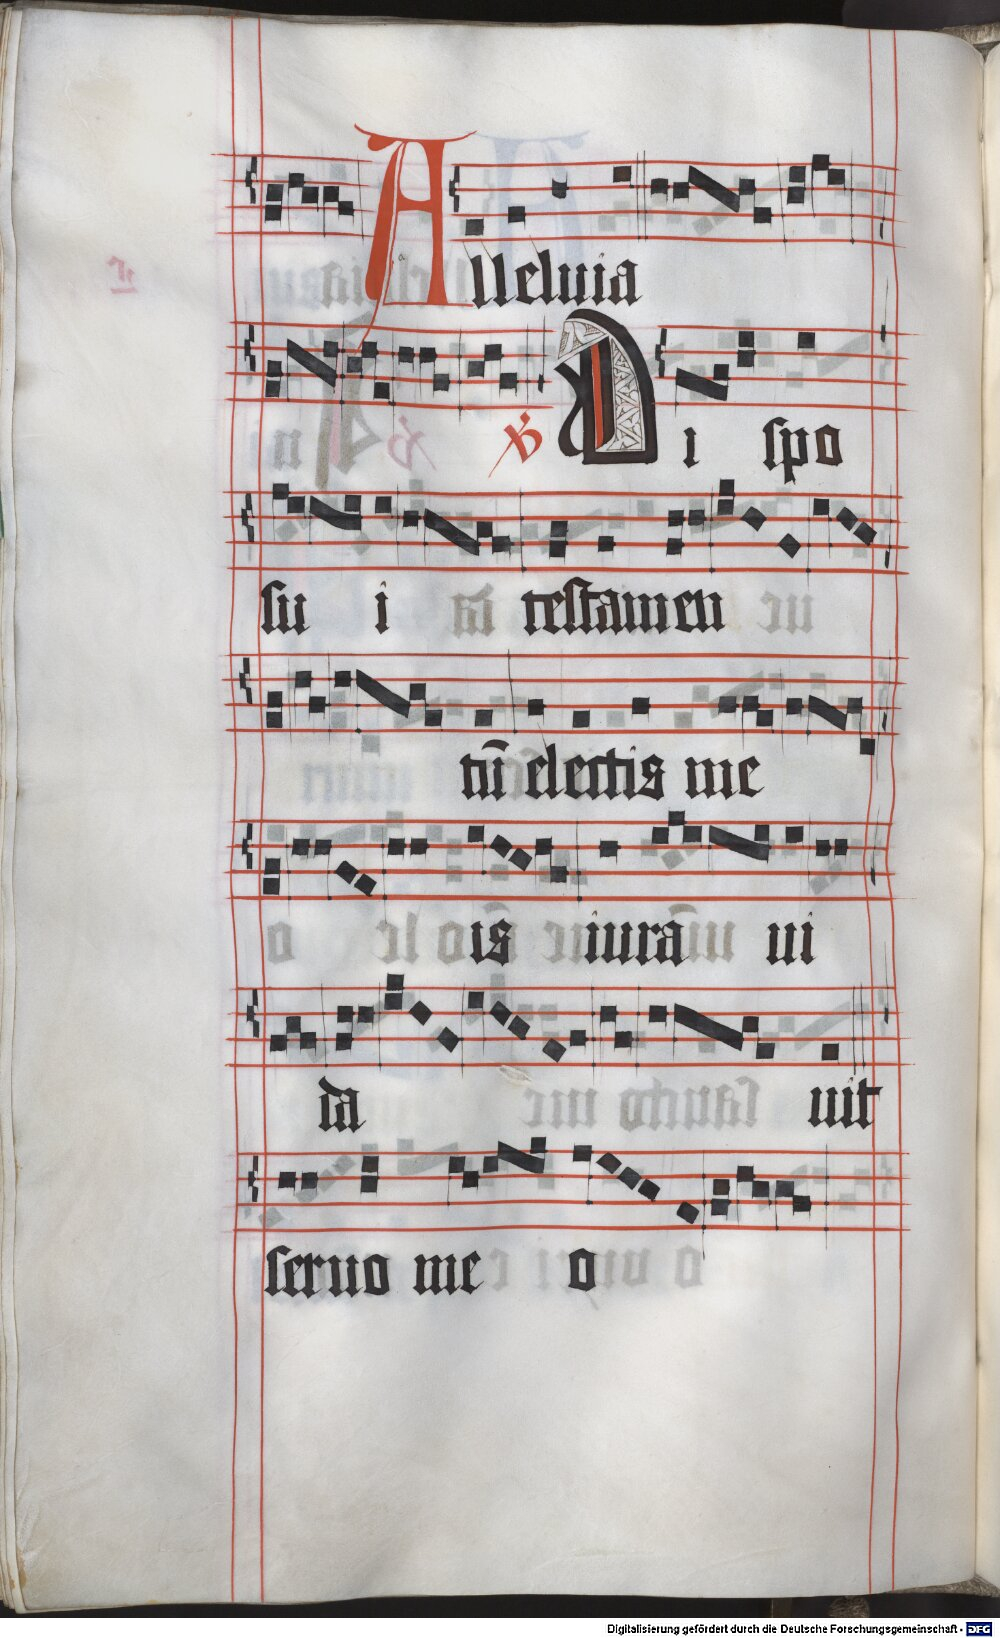 Alleluia
℣ Di spo
su i testamen
tū electis me
is iuraui
da uit
seruo me o
Digitalisierung gefördert durch die Deutsche Forschungsgemeinschaft - DFG